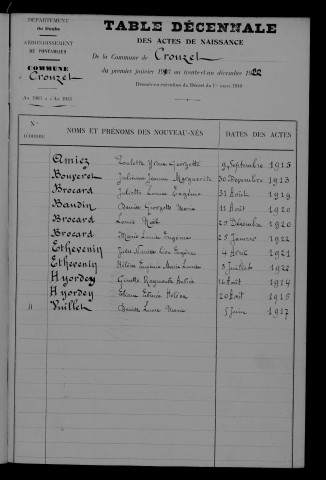 DÉPARTEMENT
du Doubs
ARRONDISSEMENT
DE PONTARLIER
COMMUNE
Crouzet
TABLE DÉCENNALE
DES ACTES DE NAISSANCE
De la Commune de Crouzet
du premier janvier 1913 au trente et un décembre 1922
Dressée en exécution du Décret du
N°
D'ORDRE
NOMS ET PRÉNOMS DES NOUVEAU-NÉS
DATES DES ACTES
Amiez Paulette Georgette 9 Septembre 1915
Bouveret Julienne Jeanne Marguerite 30 Décembre 1913
Brocard Juliette Louise Eugénie 31 Août 1919
Baudin Denise Georgette Maria 11 Août 1920
Brocard Louis Noël 25 Décembre 1920
Brocard Marie Louise Eugénie 25 Janvier 1922
Ethevenin Jules Eugène 4 Avril 1921
Ethevenin Hélène Eugénie Marie Louise 5 Juillet 1922
Hyordey Ginette Raymonde 16 Août 1914
Hyordey Hélène 20 Août 1915
11 Vuillet Denise Marie 5 Juin 1917